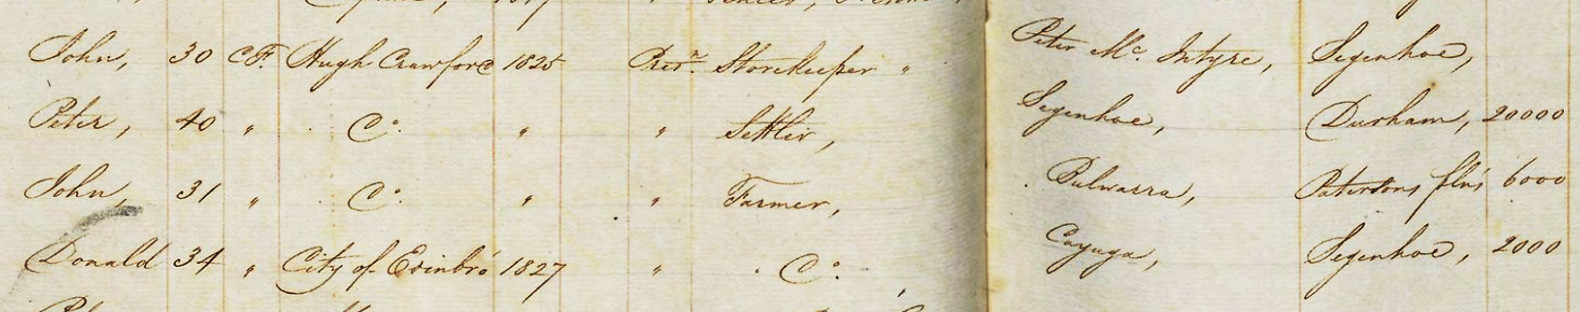 John, 30 C.F. Hugh Crawford 1825 Pres.n Storekeeper " Peter Mc. Intyre, Segenhoe,
Peter, 40 " Do. " " Settler, Segenhoe, Durham, 20000
John, 31 " Do. " " Farmer, Pulwarra, Patersons plns 6000
Donald 34 " City of Edinbro' 1827 " Do. Cayuga, Segenhoe, 2000